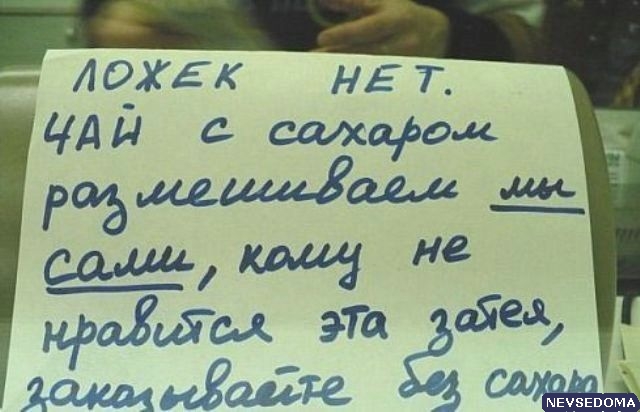 ЛОЖЕК НЕТ.
ЧАЙ С сахаром
размешиваем мы
сами, кому не
нравится эта затея,
заказывайте без сахара
NEVSEDOMA